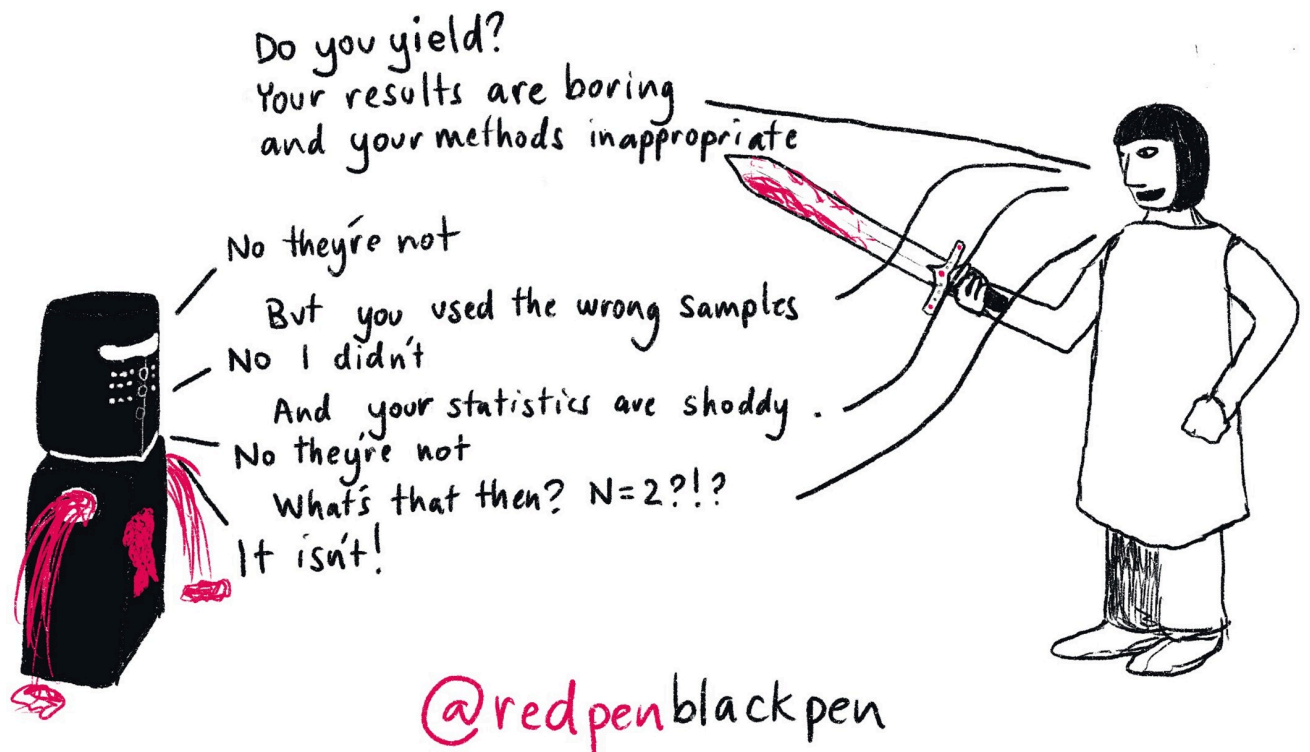 Do you yield?
Your results are boring
and your methods inappropriate
No they're not
But you used the wrong samples
No I didn't
And your statistics are shoddy.
No they're not
What's that then? N=2?!?
It isn't!
@redpenblackpen